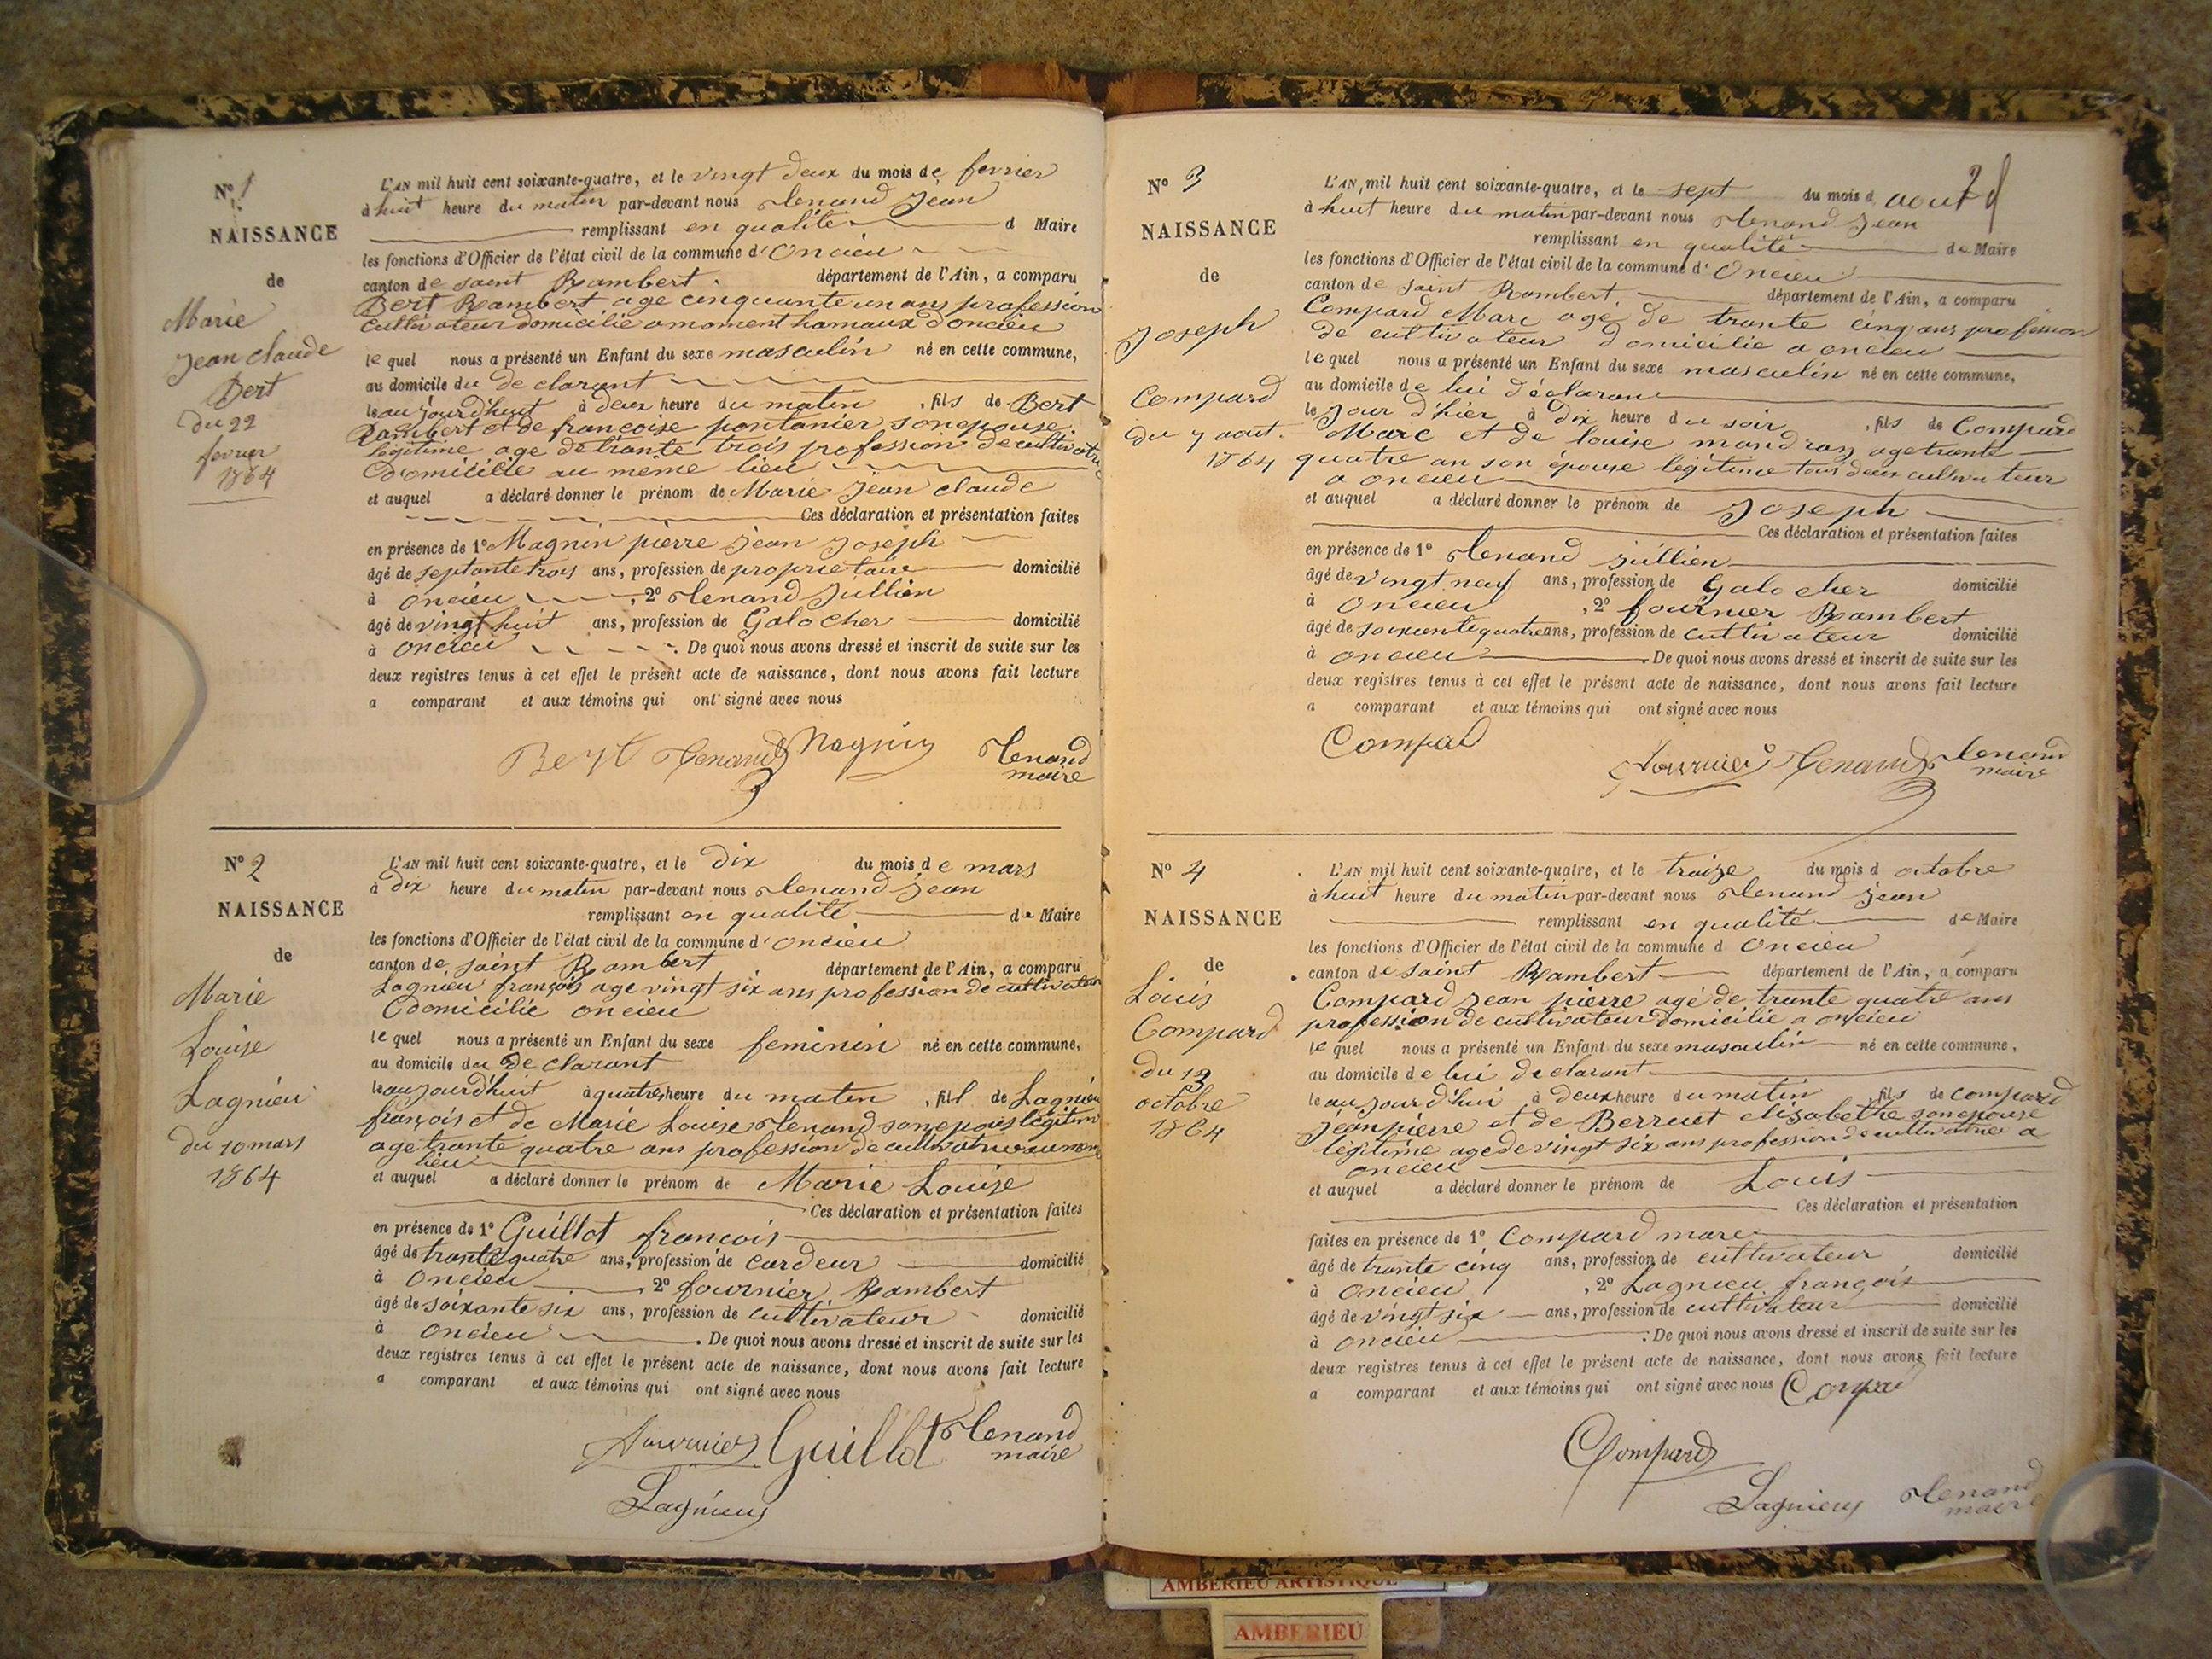 N° 1
NAISSANCE
de
Marie
Jean claude
Bert
du 22
fevrier
1864
L'AN mil huit cent soixante-quatre, et le vingt deux du mois de fevrier
à huit heure du matin par-devant nous Tenand Jean
remplissant en qualité d Maire
les fonctions d'Officier de l'état civil de la commune d'Oncieu
canton de saint Rambert département de l'Ain, a comparu
Bert Rambert age cinquante un ans profession
cultivateur domicilié a moment hamaux d'oncieu
le quel nous a présenté un Enfant du sexe masculin né en cette commune,
au domicile du de clarant
le au jourdhuit à deux heure du matin, fils de Bert
Rambert et de francoise pontanier son epouse
légitime age de trante trois profession de cultivatric
Domicilié au meme lieu
et auquel a déclaré donner le prénom de Marie Jean claude
Ces déclaration et présentation faites
en présence de 1° Magnin pierre Jean Joseph
âgé de septante trois ans, profession de proprietaire domicilié
à oncieu, 2° Tenand Jullien
âgé de vingt huit ans, profession de Galocher domicilié
à oncieu. De quoi nous avons dressé et inscrit de suite sur les
deux registres tenus à cet effet le présent acte de naissance, dont nous avons fait lecture
a comparant et aux témoins qui ont signé avec nous
Bert Tenand Magnin Tenand
maire
N° 2
NAISSANCE
de
Marie
Louise
Lagnieu
du 10 mars
1864
L'AN mil huit cent soixante-quatre, et le dix du mois de mars
à dix heure du matin par-devant nous Tenand Jean
remplissant en qualité de Maire
les fonctions d'Officier de l'état civil de la commune d'oncieu
canton de saint Rambert département de l'Ain, a comparu
Lagnieu françois age vingt six ans profession de cultivateur
Domicilié oncieu
le quel nous a présenté un Enfant du sexe feminin né en cette commune,
au domicile du De clarant
le aujourd'huit à quatre heure du matin, fill de Lagnieu
françois et de Marie Louise Tenand son epouse légitim
age trante quatre ans profession de cultivatrice au mem
lieu
et auquel a déclaré donner le prénom de Marie Louise
Ces déclaration et présentation faites
en présence de 1° Guillot francois
âgé de trante quatre ans, profession de cardeur domicilié
à Oncieu, 2° fournier Rambert
âgé de soixante six ans, profession de cultivateur domicilié
à oncieu. De quoi nous avons dressé et inscrit de suite sur les
deux registres tenus à cet effet le présent acte de naissance, dont nous avons fait lecture
a comparant et aux témoins qui ont signé avec nous
fournier Guillot Tenand
maire
Lagnieu
N° 3
NAISSANCE
de
Joseph
Compard
du 7 aout.
1864
L'AN, mil huit cent soixante-quatre, et le sept du mois d aout
à huit heure du matin par-devant nous Tenand Jean
remplissant en qualité de Maire
les fonctions d'Officier de l'état civil de la commune d'Oncieu
canton de saint Rambert. département de l'Ain, a comparu
Compard Marc age de trante cinq ans profession
de cultivateur domicilié a oncieu
le quel nous a présenté un Enfant du sexe masculin né en cette commune,
au domicile de lui déclarant
le jour d'hier à dix heure du soir, fils de Compard
Marc et de louise mandron age trante
quatre an son épouse légitime tous deux cultivateur
a oncieu
et auquel a déclaré donner le prénom de Joseph
Ces déclaration et présentation faites
en présence de 1° Tenand Jullien
âgé de vingt neuf ans, profession de Galocher domicilié
à Oncieu, 2° fournier Rambert
âgé de soixante quatre ans, profession de cultivateur domicilié
à oncieu. De quoi nous avons dressé et inscrit de suite sur les
deux registres tenus à cet effet le présent acte de naissance, dont nous avons fait lecture
a comparant et aux témoins qui ont signé avec nous
Compard
fournier Tenand Tenand
maire
N° 4
NAISSANCE
de
Louis
Compard
du 13
octobre
1864
L'AN mil huit cent soixante-quatre, et le traize du mois d octobre
à huit heure du matin par-devant nous Tenand Jean
remplissant en qualité de Maire
les fonctions d'Officier de l'état civil de la commune d Oncieu
canton de saint Rambert département de l'Ain, a comparu
Compard Jean pierre agé de trante quatre ans
profession de cultivateur domicilié a oncieu
le quel nous a présenté un Enfant du sexe masculin né en cette commune,
au domicile de lui declarant
le au jour d'hui à deux heure du matin, fils de compard
Jean pierre et de Berruet elisabethe son epouse
légitime age de vingt six ans profession de cultivatrice a
oncieu
et auquel a déclaré donner le prénom de Louis
Ces déclaration et présentation
faites en présence de 1° Compard marc
âgé de trante cinq ans, profession de cultivateur domicilié
à Oncieu, 2° Lagnieu françois
âgé de vingt six ans, profession de cultivateur domicilié
à oncieu. De quoi nous avons dressé et inscrit de suite sur les
deux registres tenus à cet effet le présent acte de naissance, dont nous avons fait lecture
a comparant et aux témoins qui ont signé avec nous Compard
Compard
Lagnieu Tenand
maire
AMBERIEU ARTISTIQUE
AMBERIEU